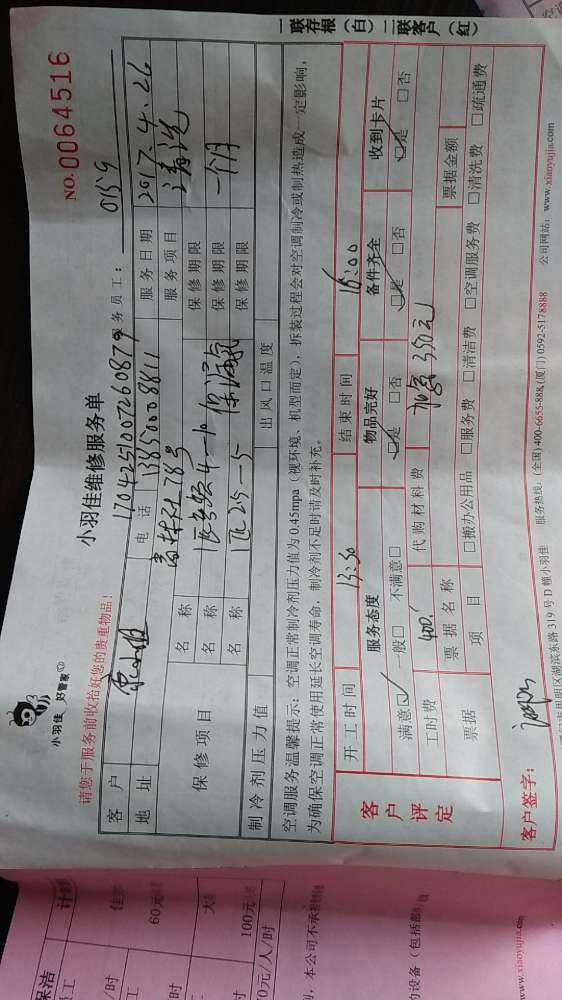 一联存根（白）二联客户（红）
NO.0064516
小羽佳 好管家
小羽佳维修服务单
请您于服务前收拾好您的贵重物品！
1704251007260879
服务员工： 0159
客户
电话 13850008811
服务日期 2017.4.26
地址
服务项目 清洗
保修项目
名称
保修期限
名称
保修期限 一个月
名称
保修期限
制冷剂压力值
出风口温度
空调服务温馨提示：空调正常制冷剂压力值为0.45mpa（视环境、机型而定），拆装过程会对空调制冷或制热造成一定影响，
为确保空调正常使用延长空调寿命，制冷剂不足时请及时补充。
开工时间 13:30 结束时间 16:00
客户评定
服务态度 物品完好 备件齐全 收到卡片
满意□ 一般□ 不满意□ □是 □否 □是 □否 □是 □否
工时费 400. 代购材料费
票据 票据名称 票据金额
项目 □搬办公用品 □服务费 □清洁费 □空调服务费 □清洗费 □疏通费
客户签字：
思明区湖滨东路319号D幢小羽佳 服务热线：(全国)400-6655-888,(厦门)0592-5178888 公司网站：www.xiaoyujia.com
保洁
60元
100元
0元/人/时
，本公司不承
的设备（包括部
www.xiaoyujia.com